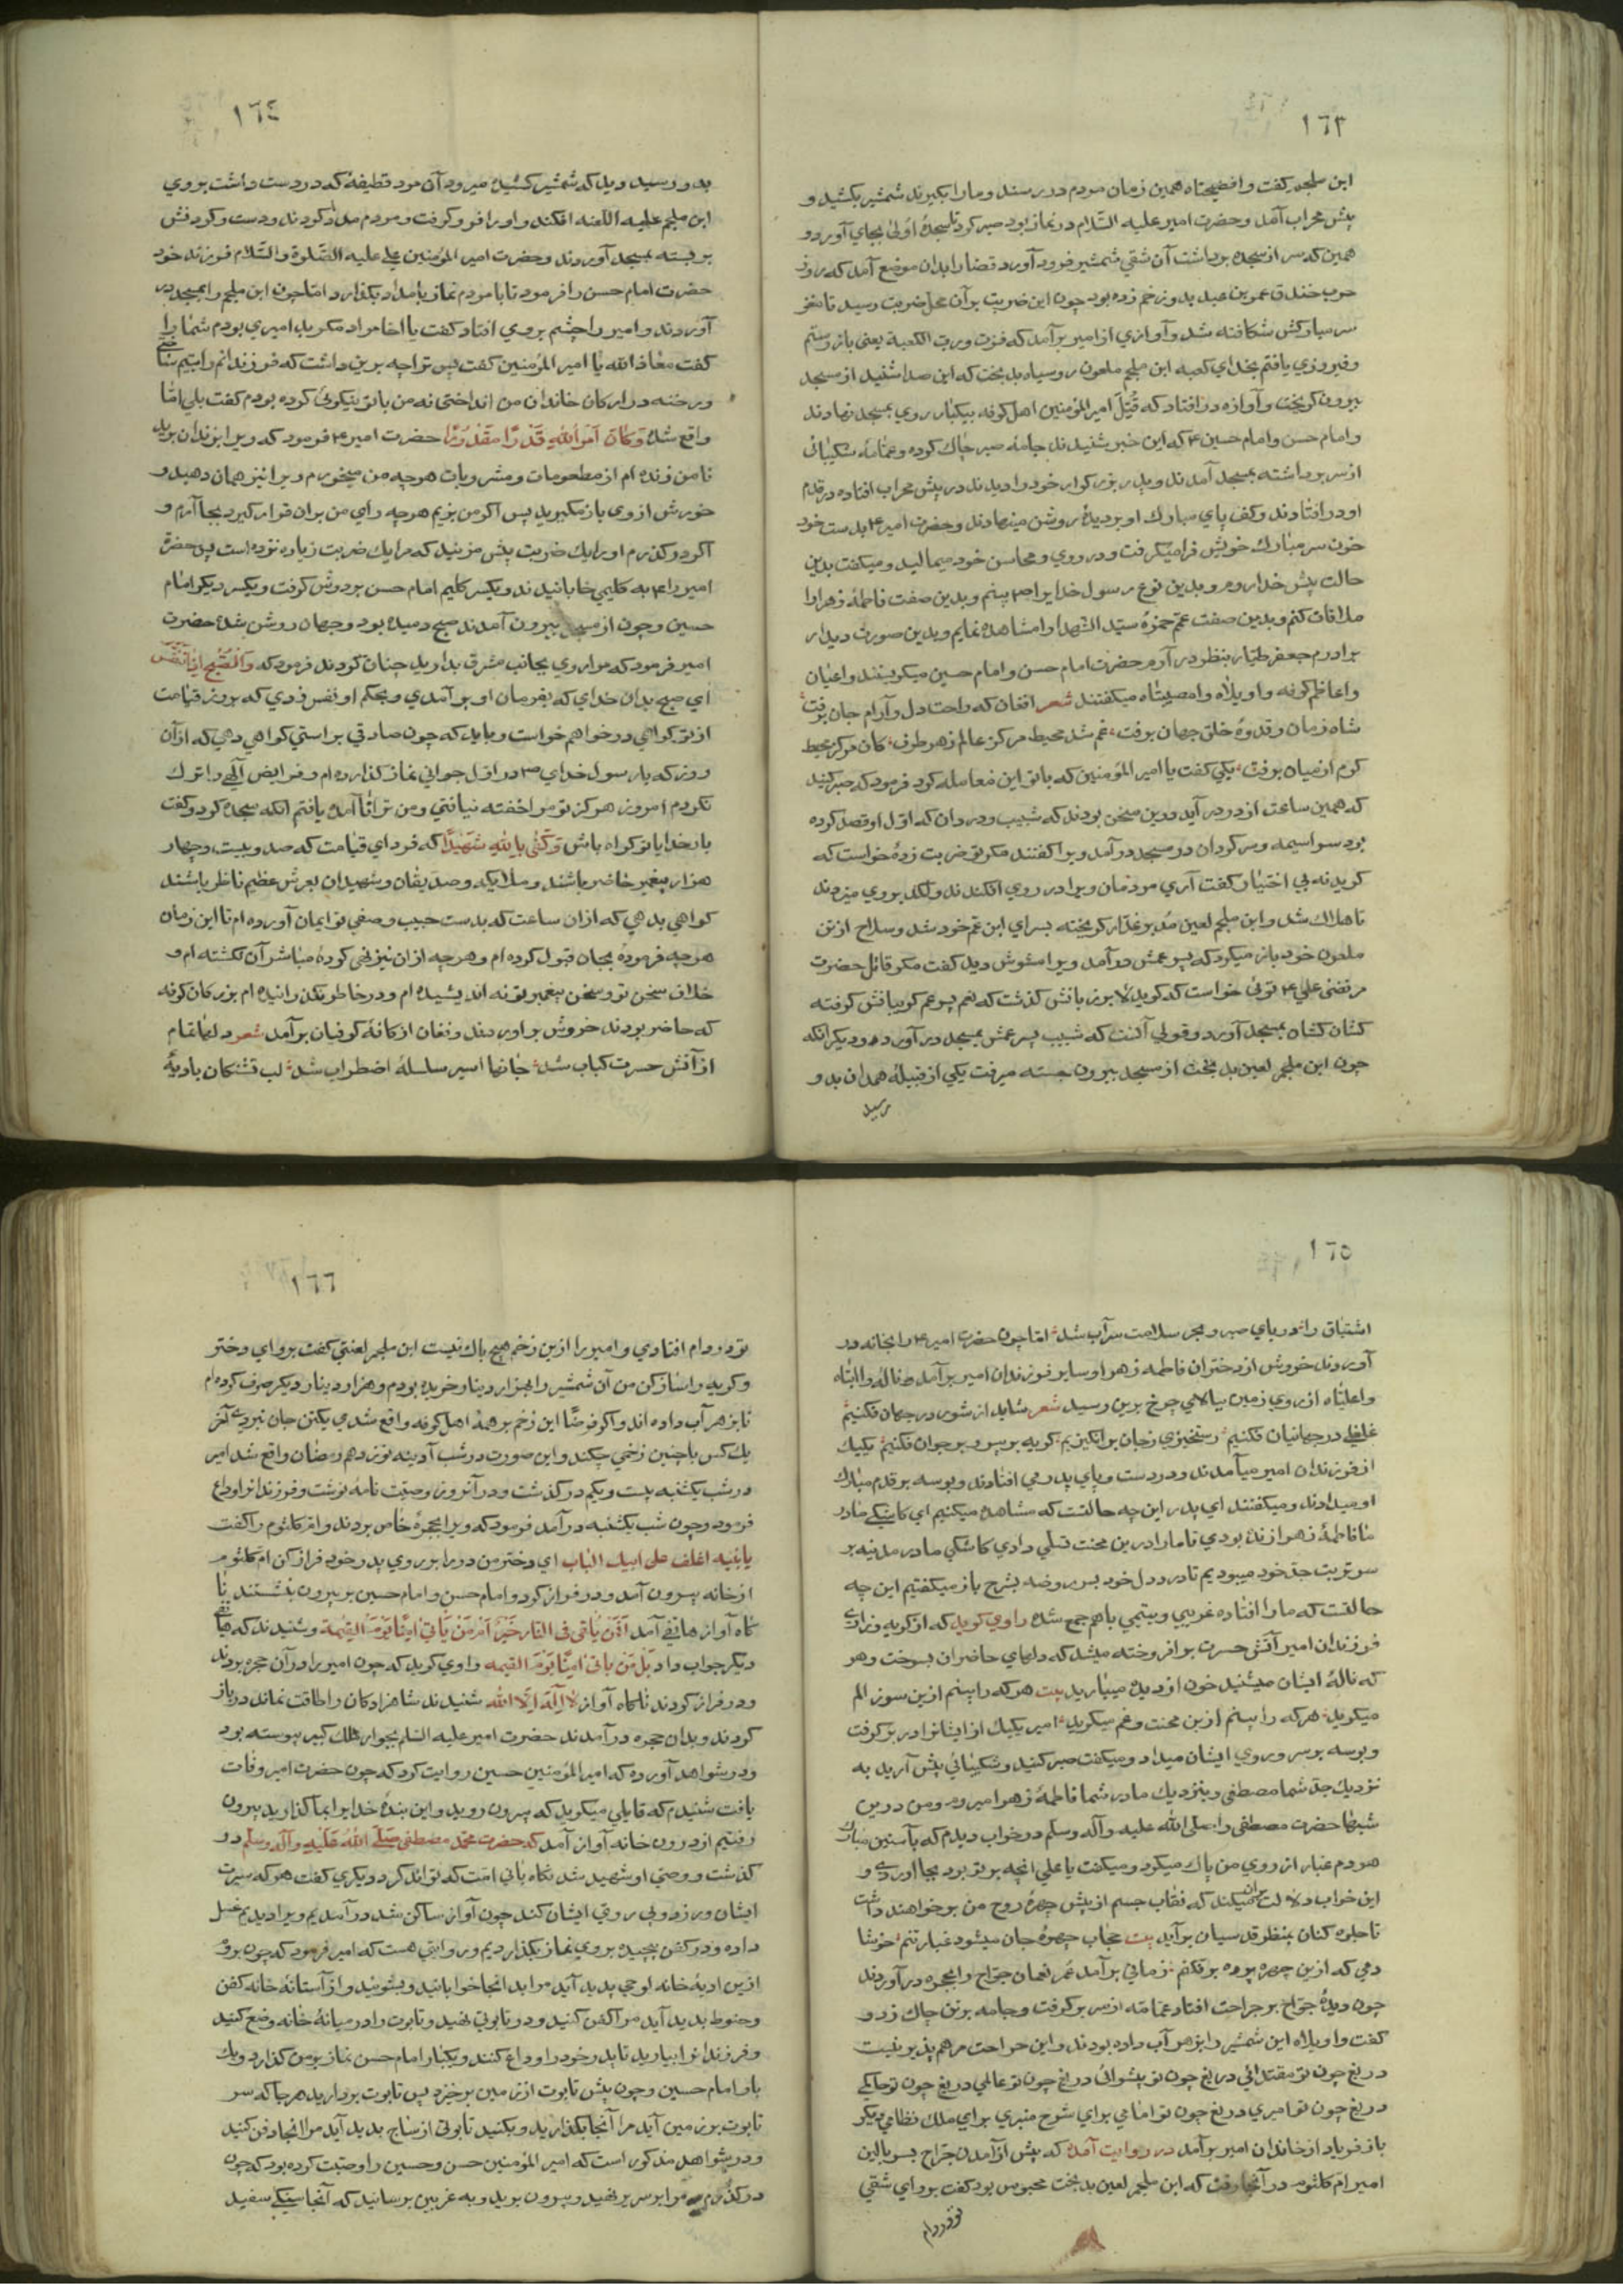 ١٦٣
ابن ملجم كفت وافضيحتاه همين زمان مردم در رسند وما را بكيرند شمشير بكشيد و
پيش محراب آمد وحضرت امير عليه السّلام در نماز بود صبر كرد تا سجدهٔ اولى بجاي آورد و
همين كه سر از سجده برداشت آن شقي شمشير فرود آورد قضا را بدان موضع آمد كه روز
حرب خندق عمرو بن عبد ود زخم زده بود چون اين ضربت بر آن محل ضربت رسيد تا مغز
سر مباركش شكافته شد وآوازي از امير برآمد كه فزت ورب الكعبة يعني باز رستم
وفيروزي يافتم بخداي كعبه ابن ملجم ملعون روسياه بدبخت كه اين صدا شنيد از مسجد
بيرون كريخت وآوازه در افتاد كه قُتِلَ امير المؤمنين اهل كوفه بيكبار روي بمسجد نهادند
وامام حسن وامام حسين ع كه اين خبر شنيدند جامهٔ صبر چاك كرده وعمامهٔ شكيبائى
از سر برداشته بمسجد آمدند وپدر بزركوار خود را ديدند در پيش محراب افتاده در قدم
او در افتادند وكف پاي مبارك او بر ديدهٔ روشن مينهادند وحضرت امير ع بدست خود
خون سر مبارك خويش فرا ميكرفت ودر روي ومحاسن خود ميماليد وميكفت بدين
حالت پيش خدا روم وبدين نوع رسول خدايرا ص بينم وبدين صفت فاطمهٔ زهرا را
ملاقات كنم وبدين صفت عمّ حمزهٔ سيّد الشهدا را مشاهده نمايم وبدين صورت ديدار
برادرم جعفر طيّار بنظر در آرم حضرت امام حسن وامام حسين ميكريستند واعيان
واعاظم كوفه واويلاه وامصيبتاه ميكفتند شعر افغان كه راحت دل وآرام جان برفت
شاه زمان وقدوهٔ خلق جهان برفت غم شد محيط مركز عالم ز هر طرف كان مركز محيط
كرم از ميان برفت يكي كفت يا امير المؤمنين كه با تو اين معامله كرد فرمود كه صبر كنيد
كه همين ساعت از در در آيد ودرين سخن بودند كه شبيب وردان كه اوّل او قصد كرده
بود سراسيمه وسركردان در مسجد در آمد ويرا كفتند مكر تو ضربت زدهٔ خواست كه
كويد نه بي اختيار كفت آري مردمان ويرا در روي افكندند ولكد بروي ميزدند
تا هلاك شد وابن ملجم لعين مدبر غدّار كريخته بسراي ابن عم خود شد وسلاح از تن
ملعون خود باز ميكرد كه پسر عمش در آمد ويرا مشوش ديد كفت مكر قاتل حضرت
مرتضى علي ع توئى خواست كه كويد لا بر زبانش كذشت كه نعم پسر عم كريبانش كرفته
كشان كشان بمسجد آورد وقولي آنست كه شبيب پسر عمش بمسجد در آورده وديكر آنكه
چون ابن ملجم لعين بدبخت از مسجد بيرون جسته ميرفت يكي از قبيلهٔ همدان بدو
رسيد
١٦٤
بدو رسيد وديد كه شمشير كشيده ميرود آن مرد قطيفهٔ كه در دست داشت بروي
ابن ملجم عليه اللعنه افكند واو را فرو كرفت ومردم مدد كردند ودست وكردنش
بر بسته بمسجد آوردند وحضرت امير المؤمنين علي عليه الصّلوة والسّلام فرزند خود
حضرت امام حسن را فرمود تا با مردم نماز بامداد بكذارد امّا چون ابن ملجم را بمسجد در
آوردند وامير را چشم بروي افتاد كفت يا اخا مراد مكر بد اميري بودم شما را
كفت معاذ الله يا امير المؤمنين كفت پس ترا چه برين داشت كه فرزندانم را يتيم ساختي
ورخنه در اركان خاندان من انداختي نه من با تو نيكوئي كرده بودم كفت بلي امّا
واقع شده وَكانَ أمرُ اللهِ قَدَرًا مَقْدُورًا حضرت امير ع فرمود كه ويرا بزندان بريد
تا من زنده ام از مطعومات ومشروبات هرچه من ميخورم ويرا نيز همان دهيد و
خورش از وي باز مكيريد پس اكر من بزيم هرچه راي من بران قرار كيرد بجا آرم و
اكر در كذرم او را يك ضربت بيش مزنيد كه مرا يك ضربت زياده نزده است پس حضرة
امير را ع به كليمي خابانيدند ويكسر كليم امام حسن بر دوش كرفت ويكسر ديكر امام
حسين وچون از مسجد بيرون آمدند صبح دميده بود وجهان روشن شده حضرت
امير فرمود كه مرا روي بجانب مشرق بداريد چنان كردند فرمود كه وَالصُّبْحِ إذا تَنَفَّسَ
اي صبح بدان خداي كه بفرمان او برآمدي وبحكم او نفس زدي كه بروز قيامت
از تو كواهي در خواهم خواست وبايد كه چون صادقي براستي كواهي دهي كه از آن
روز كه با رسول خداي ص در اوّل جواني نماز كذارده ام وفرايض الهي را ترك
نكردم امروز هركز تو مرا خفته نيافتي ومن ترا تا آمده يافتم آنكه سجده كرد وكفت
بار خدايا تو كواه باش وَكَفى بِاللهِ شَهِيْدًا كه فرداي قيامت كه صد وبيست وچهار
هزار پيغمبر حاضر باشند وملايكه وصديقان وشهيدان بعرش عظيم ناظر باشند
كواهي بدهي كه از آن ساعت كه بدست حبيب وصفي تو ايمان آورده ام تا اين زمان
هرچه فرمودهٔ بجان قبول كرده ام وهرچه از ان نيز نهى كردهٔ مباشر آن نكشته ام و
خلاف سخن تو وسخن پيغمبر تو نه انديشيده ام ودر خاطر نكذرانيده ام بزركان كوفه
كه حاضر بودند خروش بر اوردند وفغان از كافهٔ كوفيان برآمد شعر دلها تمام
از آتش حسرت كباب شد جانها اسير سلسلهٔ اضطراب شد لب تشنكان باديهٔ
١٦٥
اشتياق را دريای صبر وبحر سلامت سرآب شد امّا چون حضرت امير ع را بخانه در
آوردند خروش از دختران فاطمه زهرا وساير فرزندان امير برآمد وناله وا ابتاه
واعليّاه از روي زمين ببالاي چرخ برين رسيد شعر شايد از شور در جهان فكنيم
غلغلي در جهانيان فكنيم رستخيزي ز جان بر انكيزيم كريه بر پير وبر جوان فكنيم يكيك
از فرزندان امير ميآمدند ودر دست وپاي پدر مي افتادند وبوسه بر قدم مبارك
او ميدادند وميكفتند اي پدر اين چه حالتست كه مشاهده ميكنيم اي كاشكي مادر
ما فاطمهٔ زهرا زنده بودي تا ما را درين محنت تسلي دادي كاشكي ما در مدينه بر
سر تربت جدّ خود ميبوديم تا درد دل خود بسر روضه بشرح باز ميكفتيم اين چه
حالتست كه ما را افتاده غريبي ويتيمي باهم جمع شده راوي كويد كه از كريه وزارئ
فرزندان امير آتش حسرت بر افروخته ميشد كه دلهاي حاضران بسوخت وهر
كه نالهٔ ايشان ميشنيد خون از ديده ميباريد بيت هركه را بينم ازين سوز الم
ميكريد هركه را بينم ازين محنت وغم ميكريد امير يكيك از ايشانرا در بر كرفت
وبوسه بر سر وروي ايشان ميداد وميكفت صبر كنيد وشكيبائى پيش آريد به
نزديك جدّ شما مصطفى وبنزديك مادر شما فاطمهٔ زهرا ميروم ومن درين
شبها حضرت مصطفى را صلى الله عليه وآله وسلّم در خواب ديدم كه بآستين مبارك
هردم غبار از روي من پاك ميكرد وميكفت يا علي آنچه بر تو بود بجا اوردي و
اين خواب دلالت بران ميكند كه نقاب جسم از پيش چهرهٔ روح من بر خواهند داشت
تا جلوه كنان بمنظر قدسيان برآيد بيت حجاب چهرهٔ جان ميشود غبار تنم خوشا
دمي كه ازين چهره پرده بر فكنم زماني برآمد عمر نعمان جرّاح را بحجره در آوردند
چون ديدهٔ جرّاح بر جراحت افتاد عمامه از سر بر كرفت وجامه بر تن چاك زد و
كفت واويلاه اين شمشير را بزهر آب داده بودند واين جراحت مرهم پذير نيست
دريغ چون تو مقتدائي دريغ چون تو پيشوائى دريغ چون تو عالمي دريغ چون تو حاكمي
دريغ چون تو اميري دريغ چون تو امامي براي شرح منبري براي ملك نظامي ديكر
باز فرياد از خاندان امير برآمد در روايت آمده كه پيش از آمدن جرّاح بسر بالين
امير ام كلثوم در آنجا رفت كه ابن ملجم لعين بدبخت محبوس بود كفت برو اي شقي
تو در دام
١٦٦
تو در دام افتادي وامير را ازين زخم هيچ باك نيست ابن ملجم لعنتي كفت برو اي دختر
وكريه را ساز كن من آن شمشير را بهزار دينار خريده بودم وهزار دينار ديكر صرف كرده ام
تا بزهر آب داده اند واكر فرضًا اين زخم بر همهٔ اهل كوفه واقع شدي يكتن جان نبردي آخر
يك كس با چنين زخمي چكند واين صورت در شب آدينه نوزدهم رمضان واقع شد امير
در شب يكشنبه بيست ويكم در كذشت ودر آنروز وصيّت نامهٔ نوشت وفرزندانرا وداع
فرمود وچون شب يكشنبه در آمد فرمود كه ويرا بحجرهٔ خاص بردند وام كلثوم را كفت
يا بنيه اغلف على ابيك الباب اي دختر من در را بر روي پدر خود فراز كن ام كلثوم
از خانه بيرون آمد ودر فراز كرد وامام حسن وامام حسين بر بيرون بنشستند نا
كاه آواز هاتفى آمد أَفَمَنْ يُلْقى فِى النّارِ خَيْرٌ أمْ مَنْ يَأتِى آمِنًا يَوْمَ القِيمة وشنيدند كه هاتفى
ديكر جواب داد بَلْ مَنْ ياتى آمِنًا يَوْمَ القيمه راوي كويد كه چون امير را در آن حجره بودند
ودر فراز كردند ناكاه آواز لا اِلهَ اِلّا الله شنيدند شاهزادكان را طاقت نماند در باز
كردند وبدان حجره در آمدند حضرت امير عليه السّلم بجوار ملك كبير پيوسته بود
ودر شواهد آورده كه امير المؤمنين حسين روايت كرد كه چون حضرت امير وفات
يافت شنيدم كه قايلي ميكويد كه بيرون رويد واين بندهٔ خدايرا بما كذاريد بيرون
رفتيم از درون خانه آواز آمد كه حضرت محمّد مصطفى صَلّى اللهُ عَلَيهِ وآله وسلّم در
كذشت ووصي او شهيد شد نكاه باني امّت كه تواند كرد ديكري كفت هركه سيرت
ايشان ورزد وپي روئي ايشان كند چون آواز ساكن شد در آمديم ويرا ديديم غسل
داده ودر كفن پيچيده بروي نماز بكذارديم وروايتي هست كه امير فرمود كه چون بروم
ازين خانه لوحي پديد آيد مرا بدانجا خوابانيد وبشوئيد واز آستانهٔ خانه كفن
وحنوط پديد آيد مرا كفن كنيد ودر تابوتي نهيد وتابوت را در ميانهٔ خانه وضع كنيد
وفرزندانرا بياريد تا پدر خود را وداع كنند ويكبار امام حسن نماز بر من كذارد ويك
بار امام حسين وچون پيش تابوت از زمين برخيزد پس تابوت برداريد هرجا كه سر
تابوت بر زمين آيد مرا آنجا بكذاريد وبكنيد تابوتى از ساج پديد آيد مرا انجا دفن كنيد
ودر شواهد مذكور است كه امير المؤمنين حسن وحسين را وصيّت كرده بود كه چون
در كذرم مرا بر سرير نهيد وبيرون بريد وبه غريين برسانيد كه آنجا سنكي سفيد